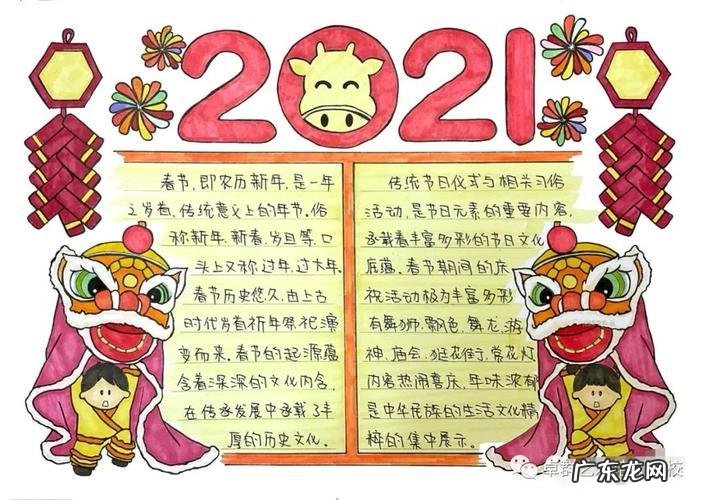 2021
春节，即农历新年，是一年
之岁首、传统意义上的年节。俗
称新年、新春、岁旦等，口
头上又称过年、过大年。
春节历史悠久，由上古
时代岁首祈年祭祀演
变而来。春节的起源蕴
含着深深的文化内含，
在传承发展中承载了丰
厚的历史文化。
传统节日仪式与相关习俗
活动，是节日元素的重要内容，
承载着丰富多彩的节日文化
底蕴。春节期间的庆
祝活动极为丰富多彩
有舞狮、飘色、舞龙、游
神、庙会、逛花街、赏花灯
内容热闹喜庆，年味浓郁
是中华民族的生活文化精
粹的集中展示。
广东龙网